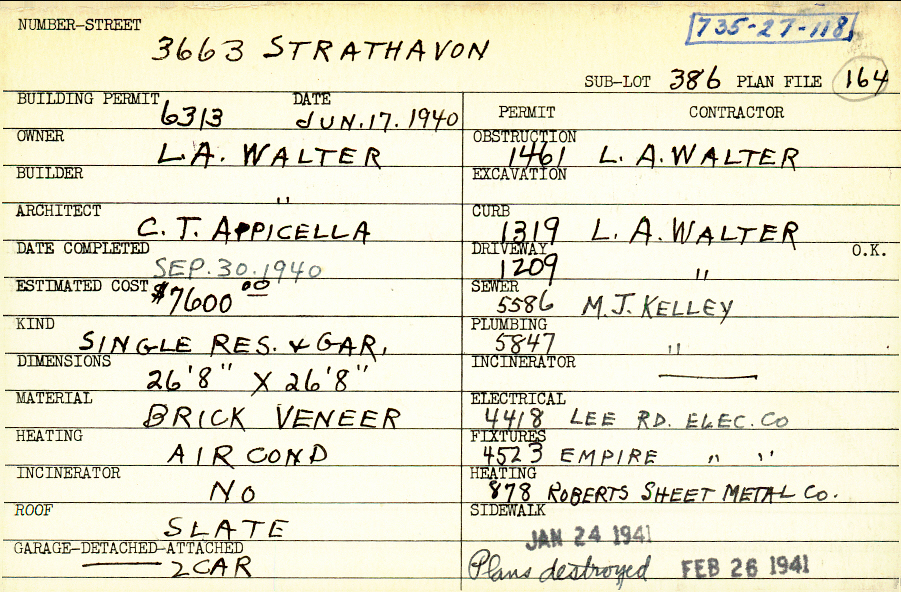 NUMBER-STREET
735-27-118
3663 STRATHAVON
SUB-LOT 386 PLAN FILE 164
BUILDING PERMIT 6313 DATE JUN.17.1940
OWNER L.A. WALTER
BUILDER "
ARCHITECT C.T. APPICELLA
DATE COMPLETED SEP.30.1940
ESTIMATED COST $7600 00
KIND SINGLE RES. & GAR.
DIMENSIONS 26'8" X 26'8"
MATERIAL BRICK VENEER
HEATING AIR COND
INCINERATOR NO
ROOF SLATE
GARAGE-DETACHED-ATTACHED 2CAR
PERMIT CONTRACTOR
OBSTRUCTION 1461 L. A. WALTER
EXCAVATION
CURB 1319 L. A. WALTER
DRIVEWAY 1209 " O.K.
SEWER 5586 M.J. KELLEY
PLUMBING 5847 "
INCINERATOR
ELECTRICAL 4418 LEE RD. ELEC. CO
FIXTURES 4523 EMPIRE " "
HEATING 878 ROBERTS SHEET METAL CO.
SIDEWALK
JAN 24 1941
Plans destroyed FEB 26 1941